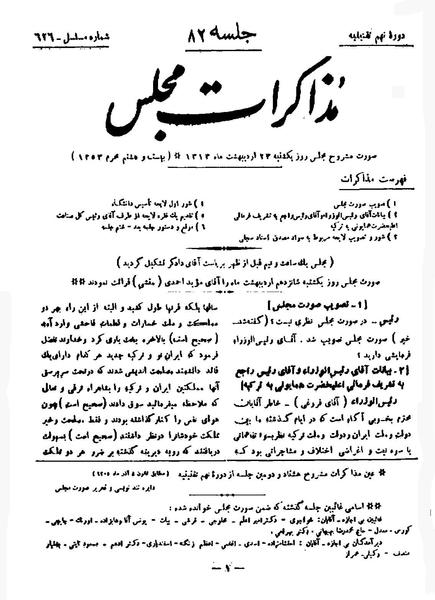 دورهٔ نهم تقنینیه
جلسه ۸۲
شماره مسلسل - ۶۲۶
مذاکرات مجلس
صورت مشروح مجلس روز یکشنبه ۲۳ اردیبهشت ماه ۱۳۱۳ * ( بیست و هشتم محرم ۱۳۵۳ )
فهرست مذاکرات
۱ ) تصویب صورت مجلس
۲ ) بیانات آقای رئیس الوزراء و آقای رئیس راجع به تشریف فرمائی
اعلیحضرت همایونی به ترکیه
۳ ) شور و تصویب لایحه مربوط به سواد مصدق اسناد سجلی
۴ ) شور اول لایحه تأسیس دانشگاه
۵ ) تقدیم یک فقره لایحه از طرف آقای رئیس کل صناعت
۶ ) موقع و دستور جلسه بعد - ختم جلسه
( مجلس یک ساعت و نیم قبل از ظهر بریاست آقای دادگر تشکیل گردید )
صورت مجلس روز یکشنبه شانزدهم اردیبهشت ماه را آقای مؤید احمدی ( منشی ) قرائت نمودند **
[ ۱ - تصویب صورت مجلس ]
رئیس - در صورت مجلس نظری نیست ؟ ( گفته شد -
خیر ) صورت مجلس تصویب شد . آقای رئیس الوزراء
فرمایشی دارید ؟
[ ۲ - بیانات آقای رئیس الوزراء و آقای رئیس راجع
به تشریف فرمائی اعلیحضرت همایونی به ترکیه ]
رئیس الوزراء ( آقای فروغی ) - خاطر آقایان
محترم بخوبی آگاه است که در ایام گذشته ما بین
دولت و ملت ایران و دولت و ملت ترکیه نظر بسوء تفاهماتی
یا سوء نیت و اغراضی اختلاف و مشاجراتی بود که
سالها بلکه قرنها طول کشید و البته از این راه بهر دو
مملکت و ملت خسارات و لطمات فاحشی وارد آمد
( صحیح است ) بالاخره بخت یاری کرد و خداوند تفضل
فرمود که ایران نو و ترکیه جدید هر کدام دارای یک
قائد دانشمند مصلحت اندیشی شدند که دوحت سرپرستی
آنها مملکتین ایران و ترکیه را بشاهراه ترقی و سال
که ملاحظه میفرمائید سوق دادند ( صحیح است ) چون
هوای نفس را کنار گذاشته بودند و فقط مصلحت و خیر
مملکت خودشان را در نظر داشتند ( صحیح است ) بسهولت
دریافتند که رویه دیرینه گذشته بر ضرر هر دو مملکت
* عین مذاکرات مشروح هشتاد و دومین جلسه از دورهٔ نهم تقنینیه ( مطابق قانون ۵ آذر ماه ۱۳۰۵ )
دایره تند نویسی و تحریر صورت مجلس
** اسامی غائبین جلسه گذشته که ضمن صورت مجلس خوانده شده :